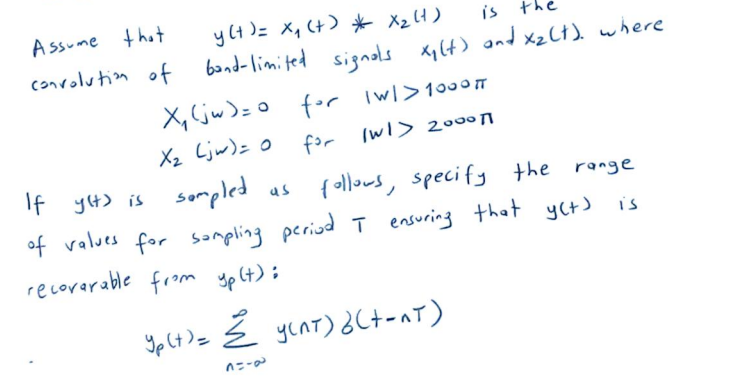 Assume that y(t)= x₁(t) * x₂(t) is the
convolution of band-limited signals x₁(t) and x₂(t). where
X₁(jw)=0 for |w|>1000π
X₂(jw)=0 for |w|> 2000π
If y(t) is sampled as follows, specify the range
of values for sampling period T ensuring that y(t) is
recorarable from yp(t):
yp(t)= ∞ Σ n=-∞ y(nT) δ(t-nT)